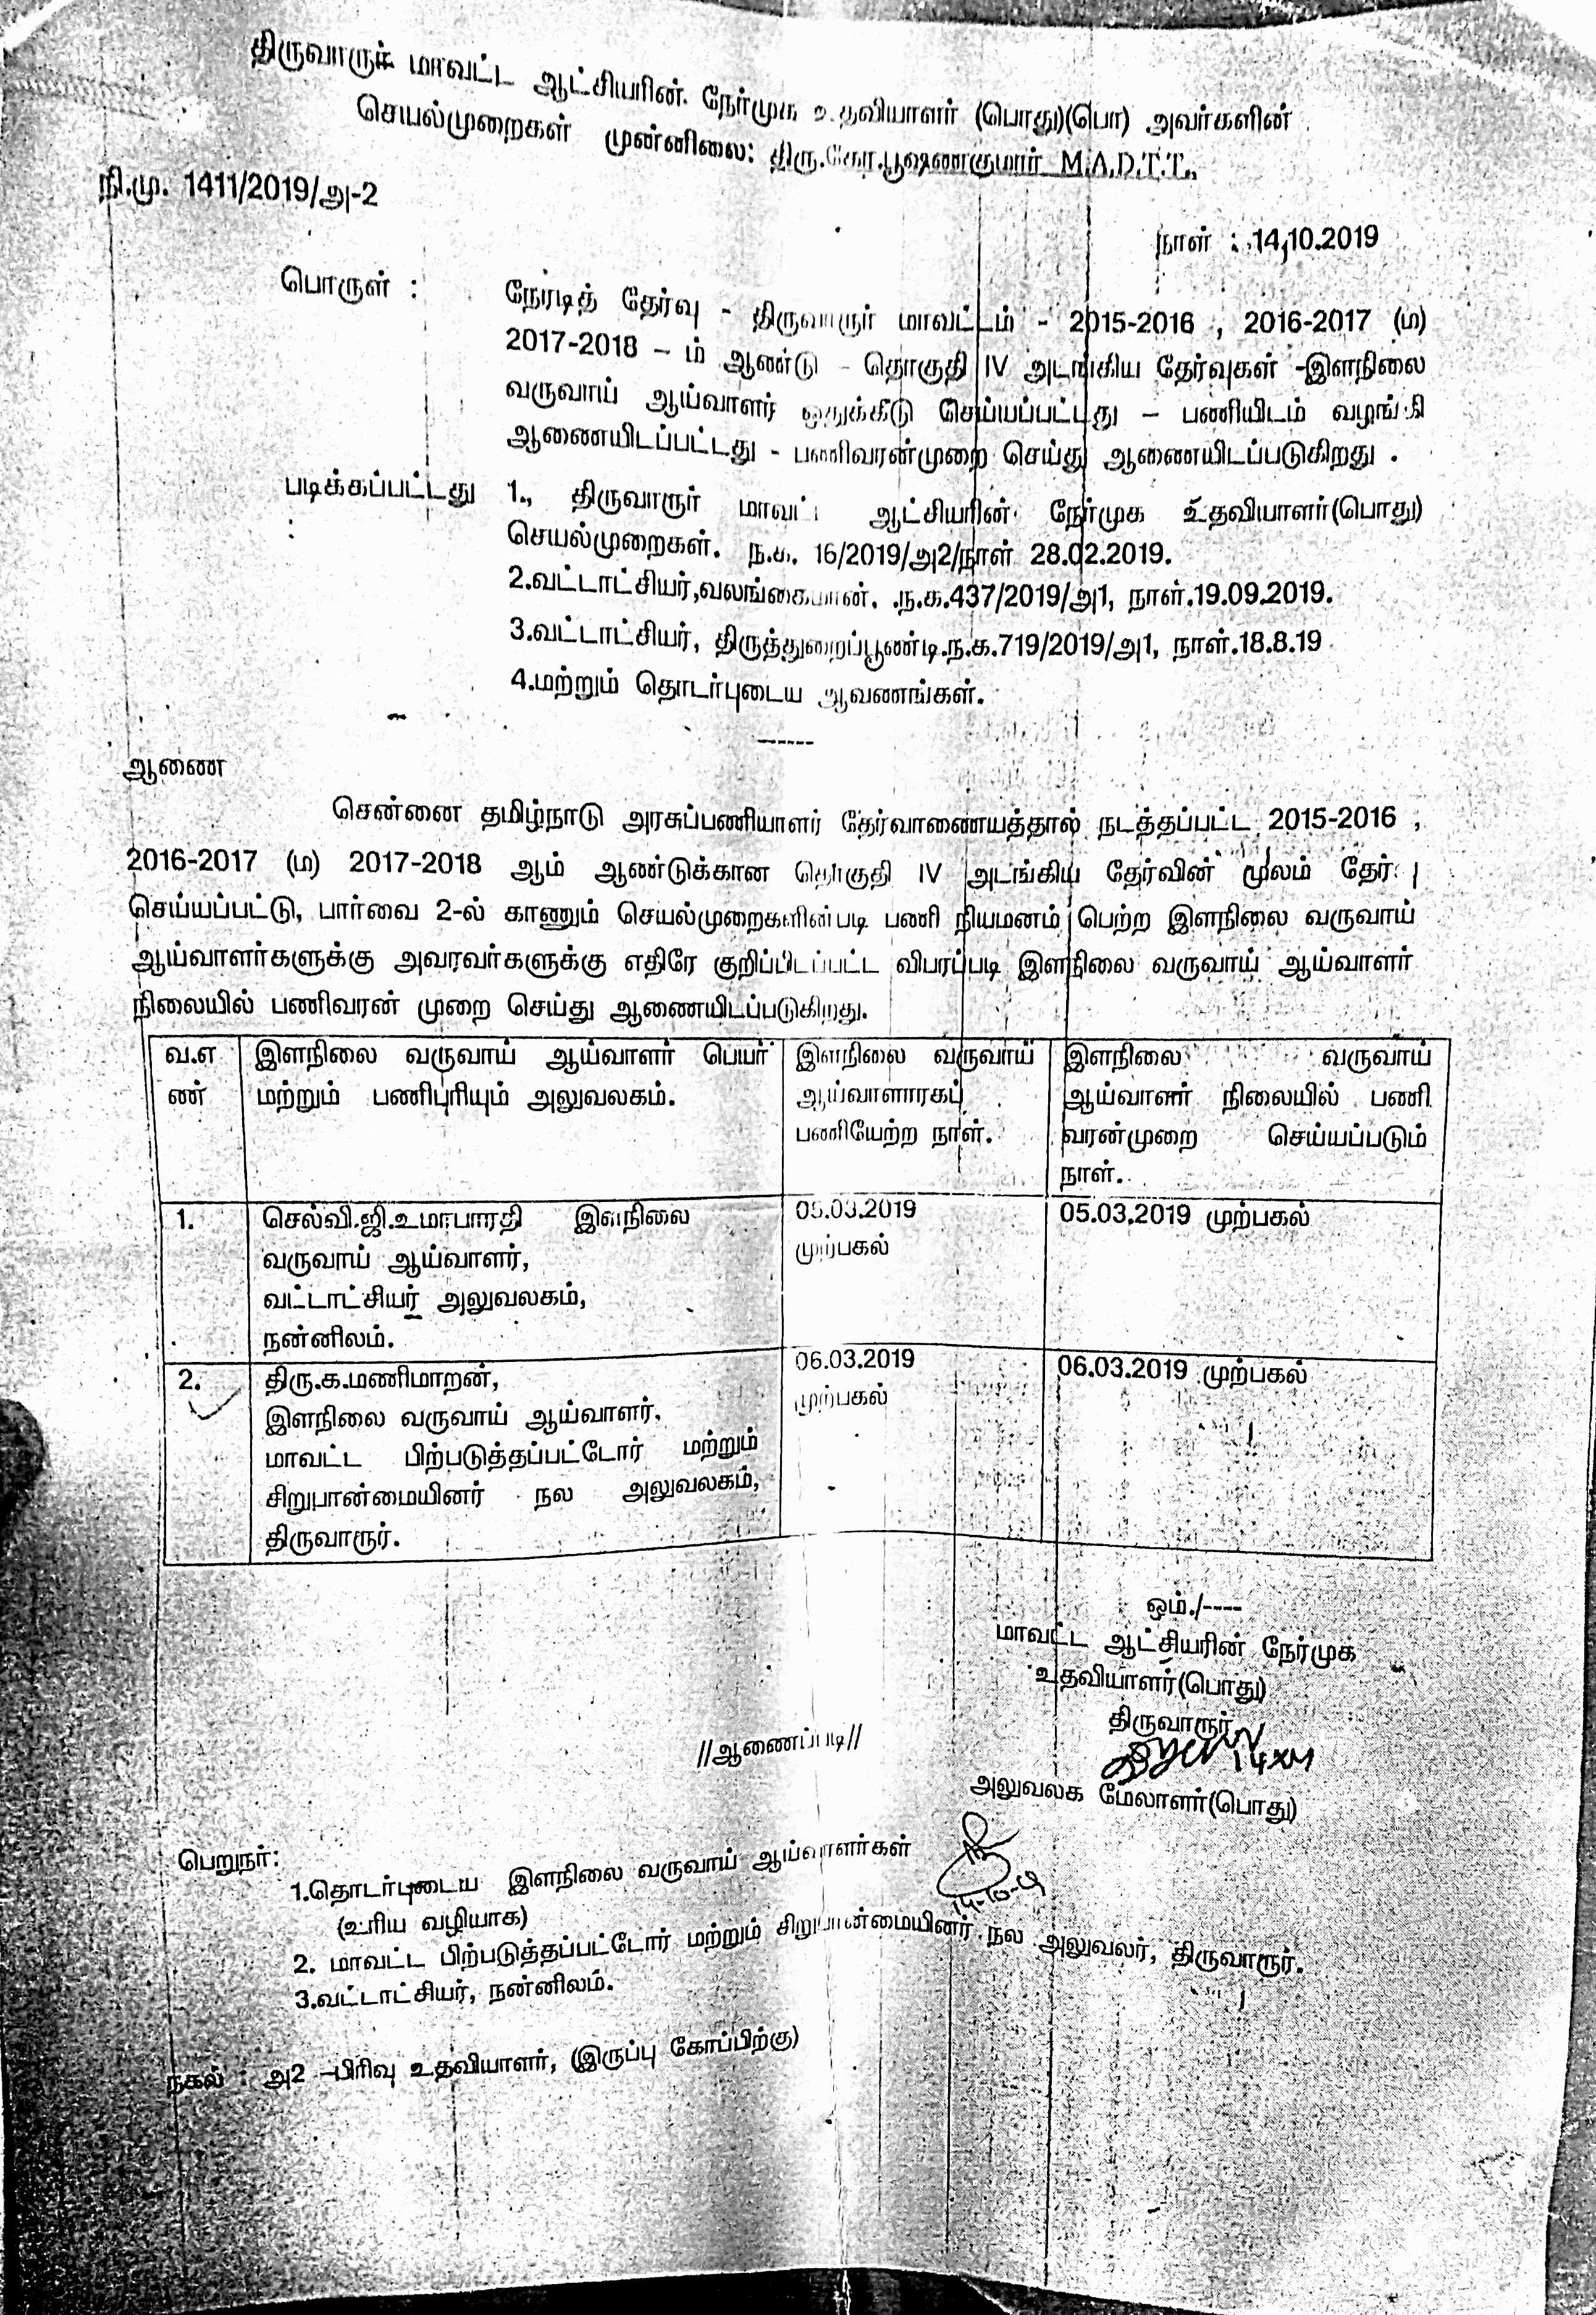 திருவாரூர் மாவட்ட ஆட்சியரின் நேர்முக உதவியாளர் (பொது)(பொ) அவர்களின்
செயல்முறைகள் முன்னிலை: திரு.கோ.பூஷணகுமார் M.A.D.T.T.,
நி.மு. 1411/2019/அ-2
நாள் : 14.10.2019
பொருள் : நேரடித் தேர்வு - திருவாரூர் மாவட்டம் - 2015-2016 , 2016-2017 (ம)
2017-2018 – ம் ஆண்டு – தொகுதி IV அடங்கிய தேர்வுகள் -இளநிலை
வருவாய் ஆய்வாளர் ஒதுக்கீடு செய்யப்பட்டது – பணியிடம் வழங்கி
ஆணையிடப்பட்டது - பணிவரன்முறை செய்து ஆணையிடப்படுகிறது .
படிக்கப்பட்டது : 1., திருவாரூர் மாவட்ட ஆட்சியரின் நேர்முக உதவியாளர்(பொது)
செயல்முறைகள். ந.க. 16/2019/அ2/நாள் 28.02.2019.
2.வட்டாட்சியர்,வலங்கைமான். .ந.க.437/2019/அ1, நாள்.19.09.2019.
3.வட்டாட்சியர், திருத்துறைப்பூண்டி.ந.க.719/2019/அ1, நாள்.18.8.19
4.மற்றும் தொடர்புடைய ஆவணங்கள்.
------
ஆணை
சென்னை தமிழ்நாடு அரசுப்பணியாளர் தேர்வாணையத்தால் நடத்தப்பட்ட 2015-2016 ,
2016-2017 (ம) 2017-2018 ஆம் ஆண்டுக்கான தொகுதி IV அடங்கிய தேர்வின் மூலம் தேர்வு
செய்யப்பட்டு, பார்வை 2-ல் காணும் செயல்முறைகளின்படி பணி நியமனம் பெற்ற இளநிலை வருவாய்
ஆய்வாளர்களுக்கு அவரவர்களுக்கு எதிரே குறிப்பிடப்பட்ட விபரப்படி இளநிலை வருவாய் ஆய்வாளர்
நிலையில் பணிவரன் முறை செய்து ஆணையிடப்படுகிறது.
வ.எ இளநிலை வருவாய் ஆய்வாளர் பெயர் இளநிலை வருவாய் இளநிலை வருவாய்
ண் மற்றும் பணிபுரியும் அலுவலகம். ஆய்வாளாரகப் ஆய்வாளர் நிலையில் பணி
பணியேற்ற நாள். வரன்முறை செய்யப்படும்
நாள்.
1. செல்வி.ஜி.உமாபாரதி இளநிலை 05.03.2019 05.03.2019 முற்பகல்
வருவாய் ஆய்வாளர், முற்பகல்
வட்டாட்சியர் அலுவலகம்,
நன்னிலம்.
2. திரு.க.மணிமாறன், 06.03.2019 06.03.2019 முற்பகல்
இளநிலை வருவாய் ஆய்வாளர், முற்பகல்
மாவட்ட பிற்படுத்தப்பட்டோர் மற்றும்
சிறுபான்மையினர் நல அலுவலகம்,
திருவாரூர்.
ஒம்./----
மாவட்ட ஆட்சியரின் நேர்முக
உதவியாளர்(பொது)
திருவாரூர்
//ஆணைப்படி//
அலுவலக மேலாளர்(பொது)
பெறுநர்:
1.தொடர்புடைய இளநிலை வருவாய் ஆய்வாளர்கள்
(உரிய வழியாக)
2. மாவட்ட பிற்படுத்தப்பட்டோர் மற்றும் சிறுபான்மையினர் நல அலுவலர், திருவாரூர்.
3.வட்டாட்சியர், நன்னிலம்.
நகல் : அ2 –பிரிவு உதவியாளர், (இருப்பு கோப்பிற்கு)